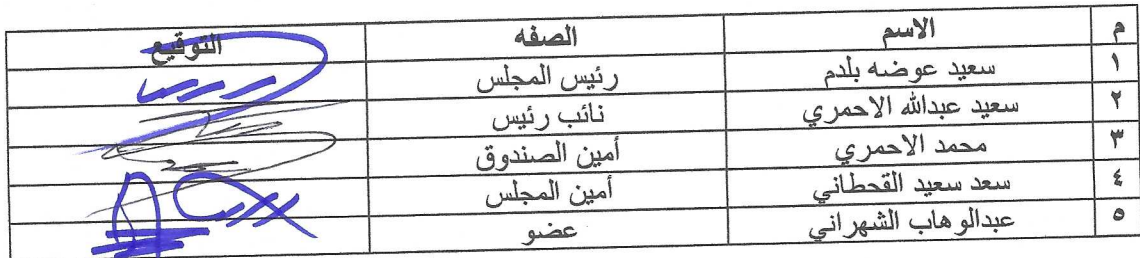 م الاسم الصفه التوقيع
١ سعيد عوضه بلدم رئيس المجلس
٢ سعيد عبدالله الاحمري نائب رئيس
٣ محمد الاحمري أمين الصندوق
٤ سعد سعيد القحطاني أمين المجلس
٥ عبدالوهاب الشهراني عضو